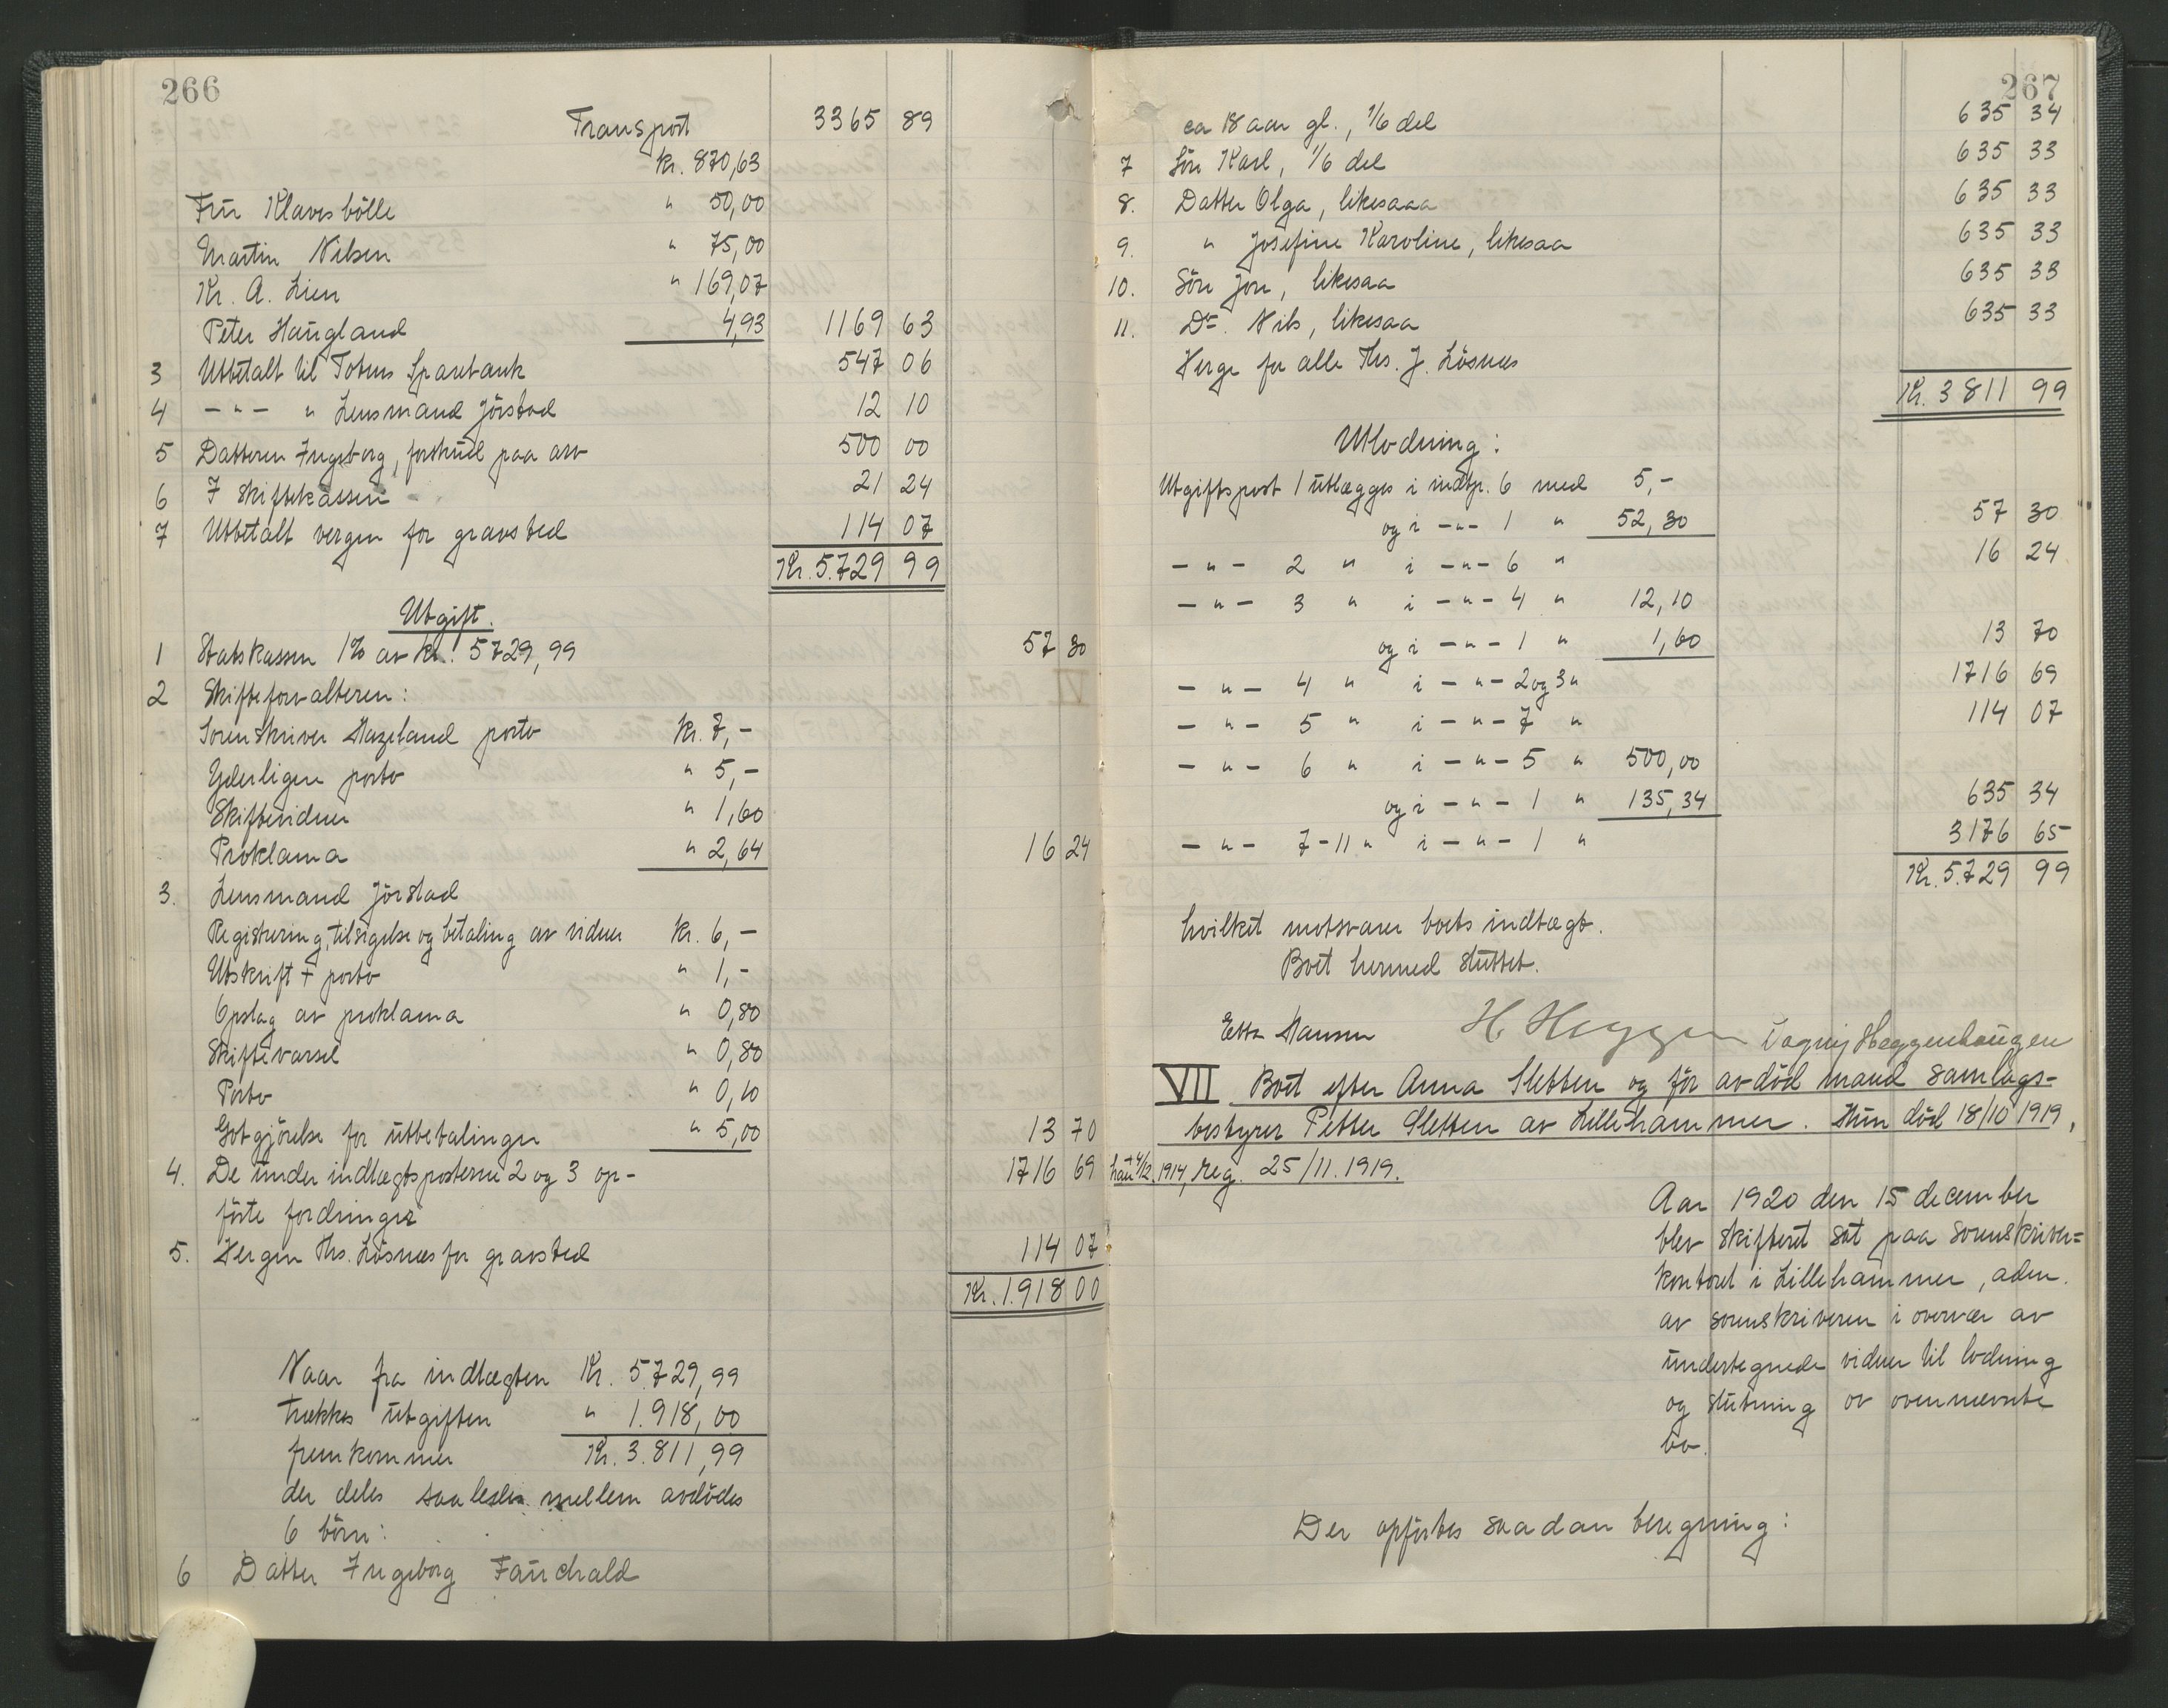 266
Transport 3365 89
kr. 870,63
Fru Klavesbölle " 50,00
Martin Nilsen " 75,00
Kr. A. Lien " 169,07
Peter Haugland 4,93 1169 63
3 Utbetalt til Totens Sparebank 547 06
4 -"- " Lensmand Jörstad 12 10
5 Datteren Ingeborg, forskud paa arv 500 00
6 I skiftekassen 21 24
7 Utbetalt vergen for gravsted 114 07
Kr. 5.729 99
Utgift.
1 Statskassen 1% av kr. 5729,99 57 30
2 Skifteforvalteren:
Sorenskriver Hazeland porto kr. 7,-
Yderligere porto " 5,-
Skiftevidner " 1,60
Proklama " 2,64 16 24
3. Lensmand Jörstad
Registrering, tilsigelse og betaling av vidner kr. 6,-
Utskrift + porto " 1,-
Opslag av proklama " 0,80
Skiftevarsel " 0,80
Porto " 0,10
Godtgjörelse for utbetalinger " 5,00 13 70
4. De under indtægtsposterne 2 og 3 op- 1716 69
förte fordringer
5. Vergen Ths. Lösnæs for gravsted 114 07
Kr. 1.918 00
Naar fra indtægten Kr. 5.729,99
trækkes utgiften " 1.918,00
fremkommer Kr. 3.811,99
der deles saaledes mellem avdödes
6 börn:
6 Datter Ingeborg Fauchald
267
ca 18 aar gl., 1/6 del 635 34
7 Sön Karl, 1/6 del 635 33
8. Datter Olga, likesaaa 635 33
9. " Josefine Karoline, likesaa 635 33
10. Sön Jon, likesaa 635 33
11. Do. Nils, likesaa 635 33
Verge for alle Ths. J. Lösnæs
Kr. 3811 99
Utlodning:
Utgiftspost 1 utlægges i indtp. 6 med 5,-
og i -"- 1 " 52,30 57 30
-"- 2 " i -"- 6 " 16 24
-"- 3 " i -"- 4 " 12,10
og i -"- 1 " 1,60 13 70
-"- 4 " i -"- 2 og 3 " 1716 69
-"- 5 " i -"- 7 " 114 07
-"- 6 " i -"- 5 " 500,00
og i -"- 1 " 135,34 635 34
-"- 7-11 " i -"- 1 " 3176 65
Kr. 5.729 99
hvilket motsvarer boets indtægt.
Boet hermed sluttet.
Hansen H. Heggen Dagny Heggenhougen
VII Boet efter Anna Sletten og för avdöd mand samlags-
bestyrer Petter Sletten av Lillehammer. Hun död 18/10 1919,
han + 4/12. 1914, reg. 25/11. 1919.
Aar 1920 den 15 december
blev skifteret sat paa sorenskriver=
kontoret i Lillehammer, adm.
av sorenskriveren i overvær av
undertegnede vidner til lodning
og slutning av ovennævnte
bo.
Der opförtes saadan beregning: